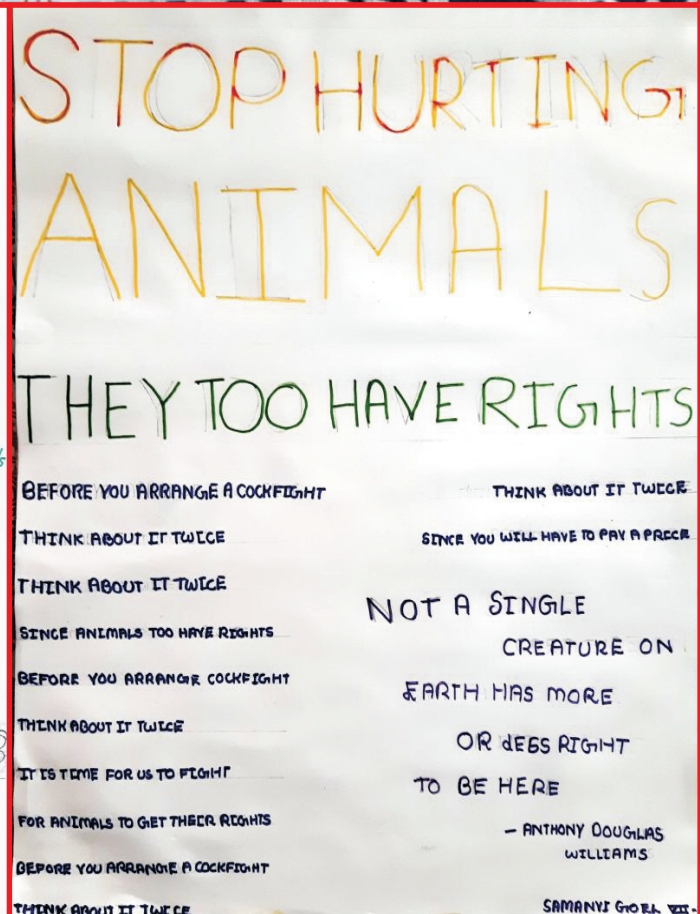 STOP HURTING
ANIMALS
THEY TOO HAVE RIGHTS
BEFORE YOU ARRANGE A COCKFIGHT
THINK ABOUT IT TWICE
THINK ABOUT IT TWICE
SINCE ANIMALS TOO HAVE RIGHTS
BEFORE YOU ARRANGE COCKFIGHT
THINK ABOUT IT TWICE
IT IS TIME FOR US TO FIGHT
FOR ANIMALS TO GET THEIR RIGHTS
BEFORE YOU ARRANGE A COCKFIGHT
THINK ABOUT IT TWICE
THINK ABOUT IT TWICE
SINCE YOU WILL HAVE TO PAY A PRICE
NOT A SINGLE
CREATURE ON
EARTH HAS MORE
OR LESS RIGHT
TO BE HERE
- ANTHONY DOUGLAS
WILLIAMS
SAMANYI GOEL VII-